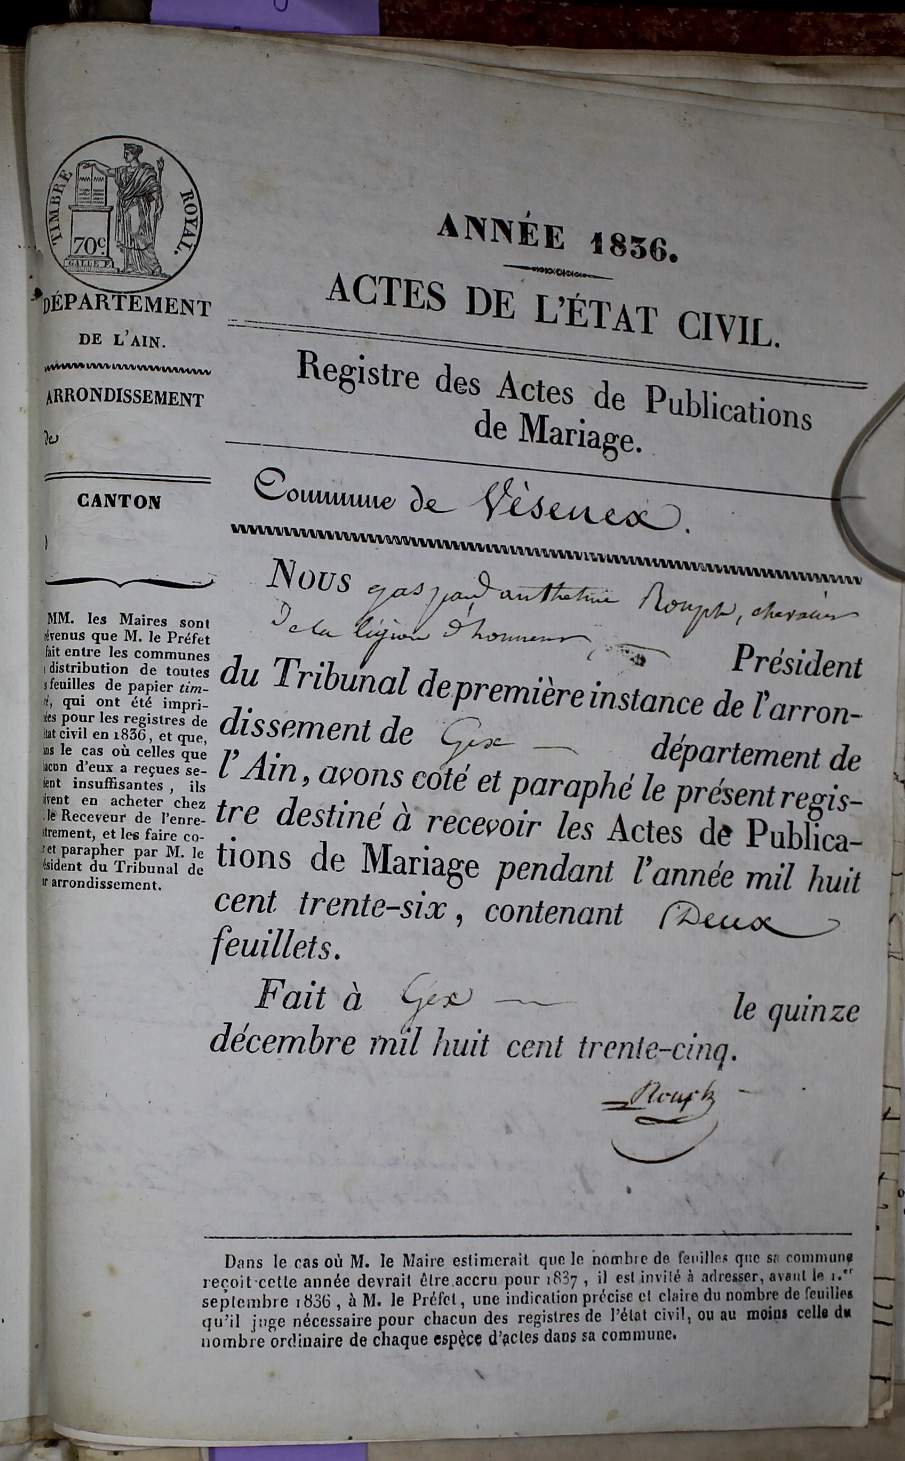 TIMBRE ROYAL.
70c.
GALLE F.
DÉPARTEMENT
DE L'AIN.
ARRONDISSEMENT
de
CANTON
MM. les Maires sont
évenus que M. le Préfet
fait entre les communes
distribution de toutes
s feuilles de papier tim-
é, qui ont été impri-
ées pour les registres de
état civil en 1836, et que,
ns le cas où celles que
acun d'eux a reçues se-
ient insuffisantes, ils
ivent en acheter chez
. le Receveur de l'enre-
strement, et les faire co-
r et parapher par M. le
ésident du Tribunal de
ur arrondissement.
ANNÉE 1836.
ACTES DE L'ÉTAT CIVIL.
Registre des Actes de Publications
de Mariage.
Commune de Vésenex.
Nous gaspard anthelme Rouph, chevalier
de la légion d'honneur, Président
du Tribunal de première instance de l'arron-
dissement de Gex département de
l'Ain, avons coté et paraphé le présent regis-
tre destiné à recevoir les Actes de Publica-
tions de Mariage pendant l'année mil huit
cent trente-six, contenant Deux
feuillets.
Fait à Gex le quinze
décembre mil huit cent trente-cinq.
Rouph
Dans le cas où M. le Maire estimerait que le nombre de feuilles que sa commune
reçoit cette année devrait être accru pour 1837, il est invité à adresser, avant le 1.er
septembre 1836, à M. le Préfet, une indication précise et claire du nombre de feuilles
qu'il juge nécessaire pour chacun des registres de l'état civil, ou au moins celle du
nombre ordinaire de chaque espèce d'actes dans sa commune.